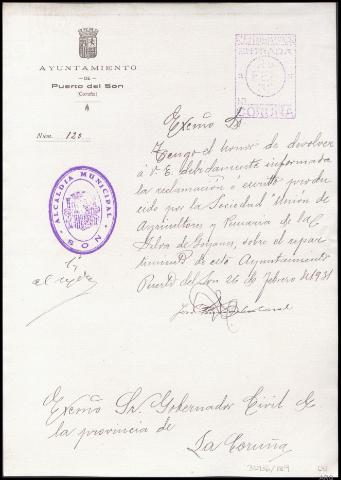 AYUNTAMIENTO
DE
Puerto del Son
(Coruña)
ENTRADA
FEB
CORUÑA
Núm. 120
ALCALDIA MUNICIPAL
SON
Excmo Sr
Tengo el honor de devolver
á V. E. debidamente informada
la reclamación ó escrito produ
cido por la Sociedad "Unión de
Agricultores y Pecuaria de la C
Silva de Goyanes, sobre el repar
timiento de este Ayuntamiento
Puerto del Son 26 de febrero de 1931
Excmo Sr. Gobernador Civil de
la provincia de
La Coruña